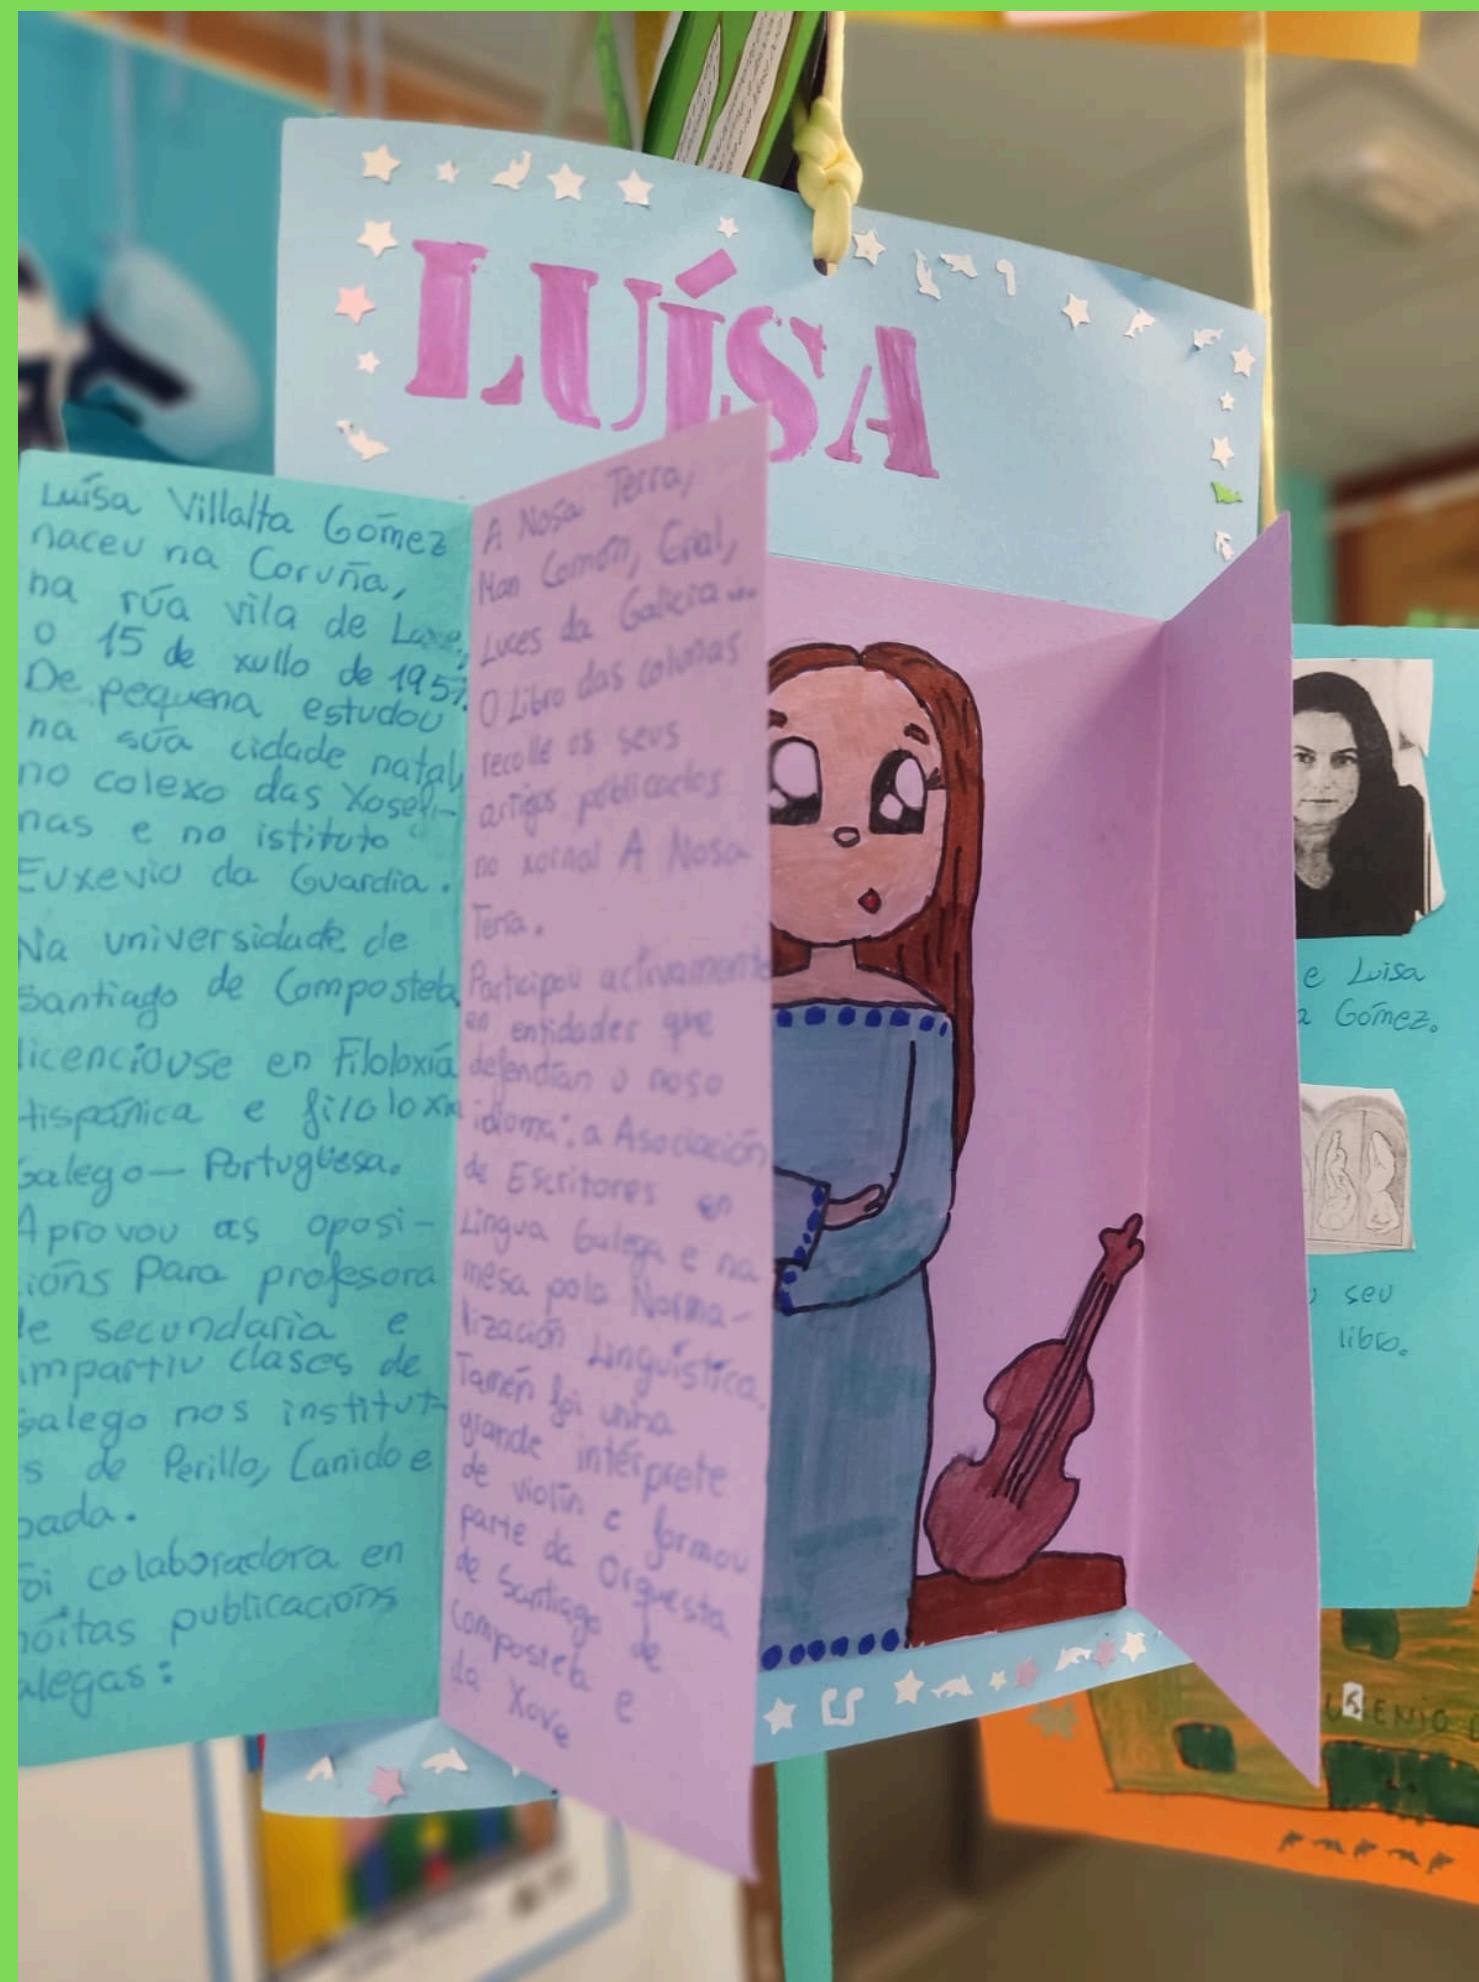 LUÍSA
Luísa Villalta Gómez
naceu na Coruña,
na rúa vila de Laxe,
o 15 de xullo de 1957.
De pequena estudou
na súa cidade natal,
no colexo das Xosefi-
nas e no istituto
Euxevio da Guardia.
Na universidade de
Santiago de Compostela
licenciouse en Filoloxía
Hispánica e filoloxía
Galego-Portuguesa.
Aprovou as oposi-
ións para profesora
de secundaria e
impartiu clases de
galego nos institut-
s de Perillo, Canido e
bada.
Foi colaboradora en
móitas publicacións
alegas:
A Nosa Terra,
Man Común, Grial,
Luces da Galicia...
O Libro das colunas
recolle os seus
artigos publicados
no xornal A Nosa
Terra.
Participou activamente
en entidades que
defendían o noso
idioma: a Asociación
de Escritores en
Lingua Galega e na
mesa pola Norma-
lización Lingüística.
Tamén foi unha
grande intérprete
de violín e formou
parte da Orquesta
de Santiago de
Compostela e
da Xove
e Luisa
a Gómez.
o seu
libro.
ENIO